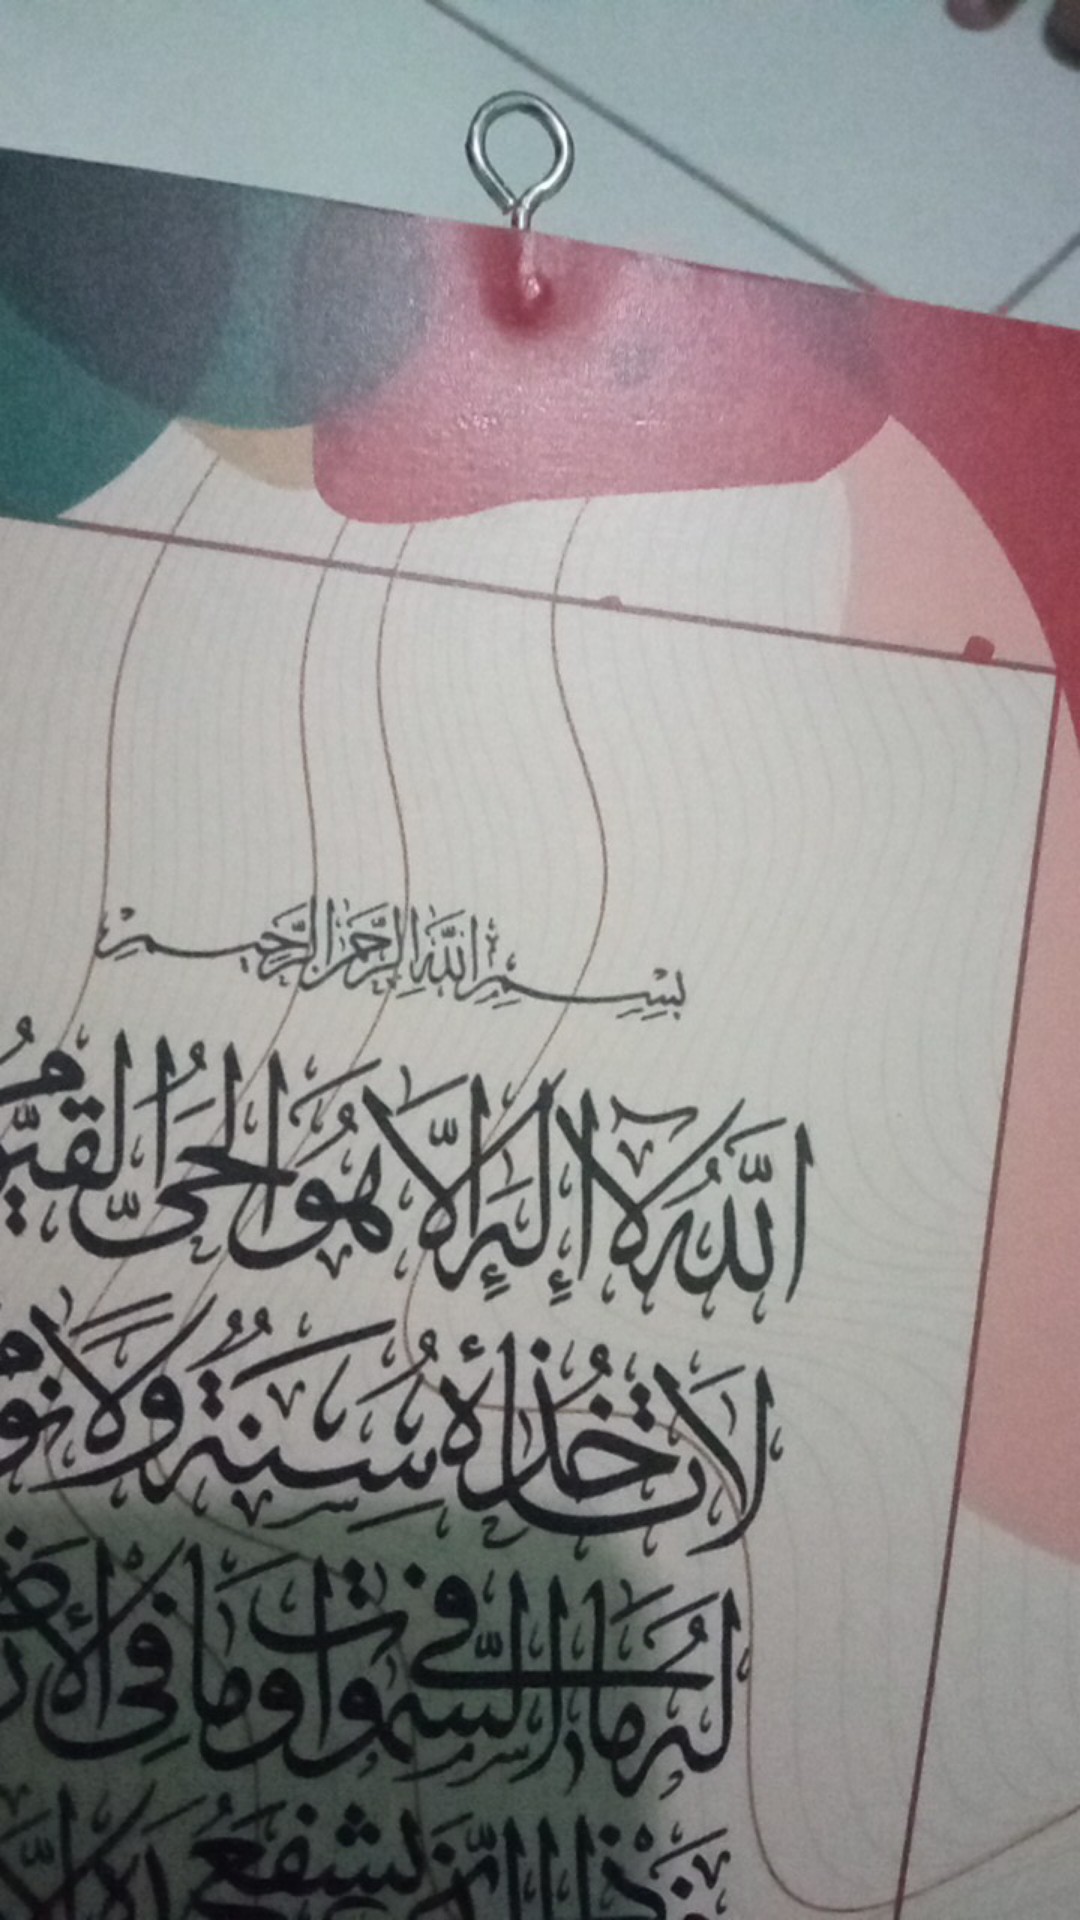 بِسْمِ اللَّهِ الرَّحْمَٰنِ الرَّحِيمِ
اللَّهُ لَا إِلَٰهَ إِلَّا هُوَ الْحَيُّ
لَا تَأْخُذُهُ سِنَةٌ وَلَا نَوْمٌ
لَهُ مَا فِي السَّمَٰوَاتِ وَمَا فِي الْأَرْضِ
يَشْفَعُ